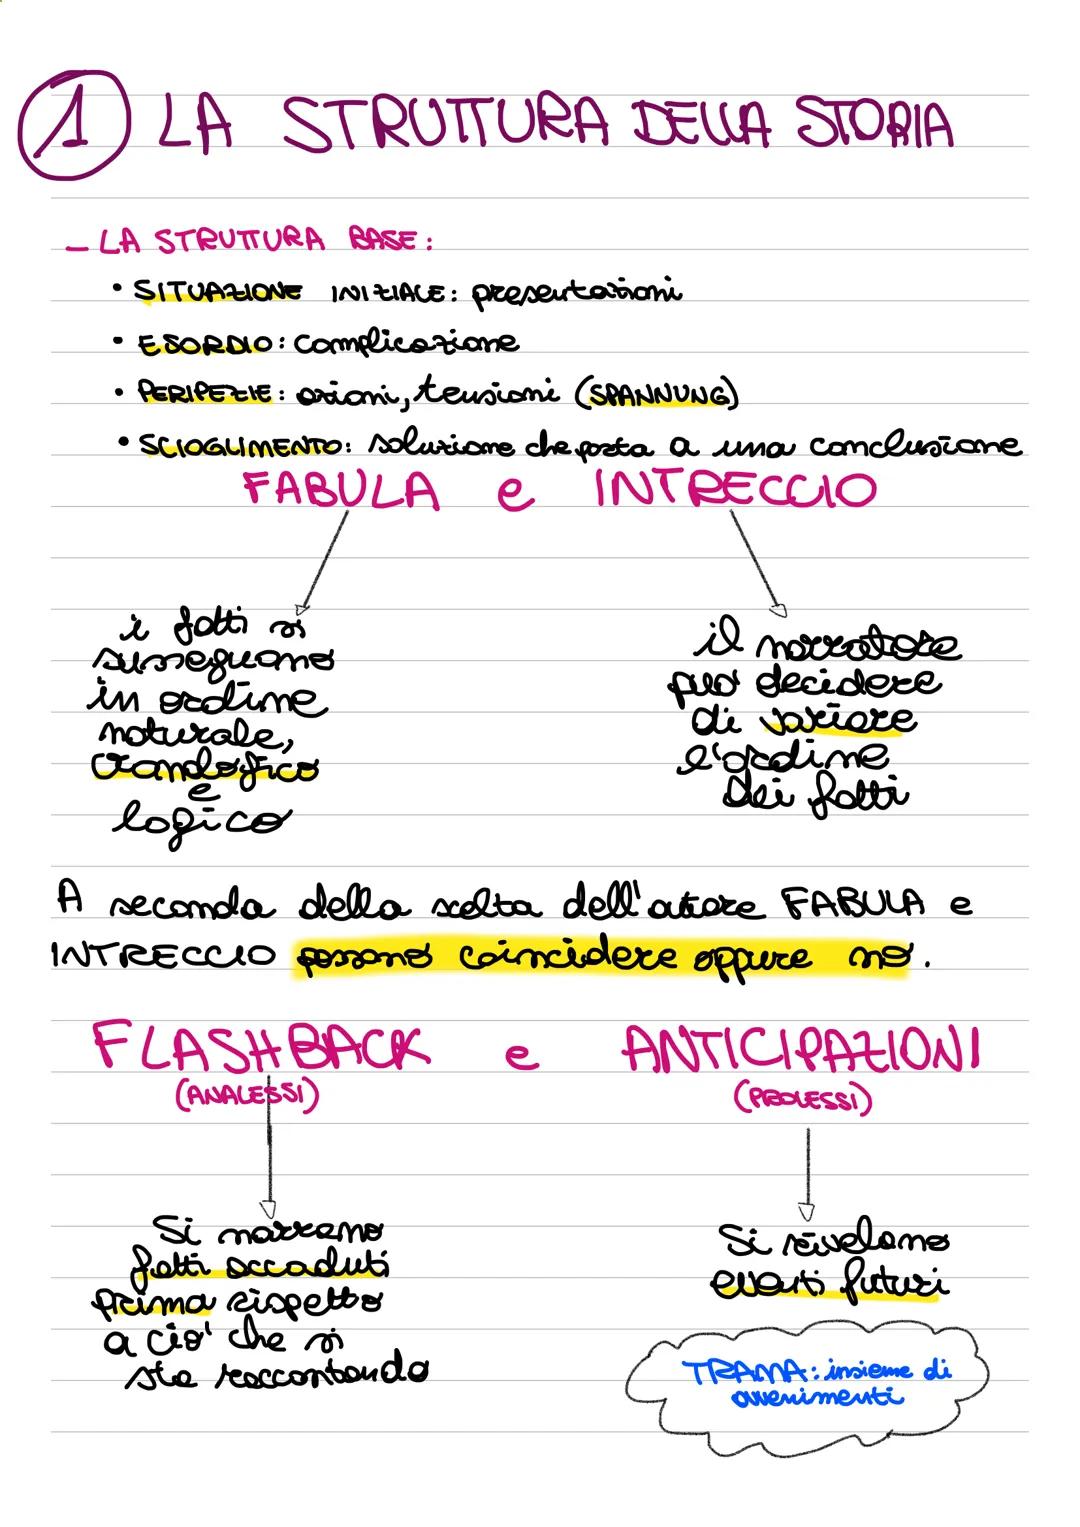 1 LA STRUTTURA DELLA STORIA
- LA STRUTTURA BASE:
• SITUAZIONE INIZIALE: presentazioni
• ESORDIO: complicazione
• PERIPEZIE: azioni, tensioni (SPANNUNG)
• SCIOGLIMENTO: soluzione che porta a una conclusione
FABULA e INTRECCIO
i fatti si
susseguono
in ordine
naturale,
cronologico
e
logico
il narratore
può decidere
di variare
l'ordine
dei fatti
A seconda della scelta dell'autore FABULA e
INTRECCIO possono coincidere oppure no.
FLASHBACK e ANTICIPAZIONI
(ANALESSI) (PROLESSI)
Si narrano
fatti accaduti
prima rispetto
a ciò che si
sta raccontando
Si rivelano
eventi futuri
TRAMA: insieme di
avvenimenti